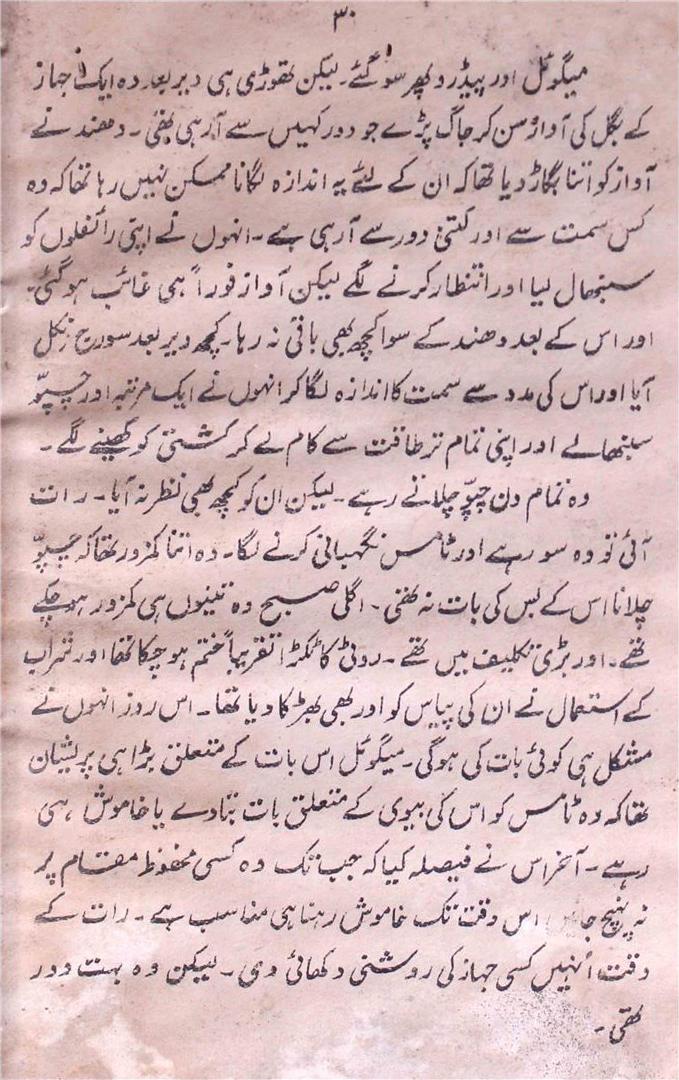 ۳۰
میگوئل اور پیڈرو پھر سو گئے۔ لیکن تھوڑی ہی دیر بعد وہ ایک جہاز
کے بگل کی آواز سن کر جاگ پڑے جو دور کہیں سے آرہی تھی۔ دھند نے
آواز کو اتنا بگاڑ دیا تھا کہ ان کے لئے یہ اندازہ لگانا ممکن نہیں رہا تھا کہ وہ
کس سمت سے اور کتنی دور سے آرہی ہے۔ انہوں نے اپنی رائفلوں کو
سنبھال لیا اور انتظار کرنے لگے لیکن آواز فوراً ہی غائب ہو گئی۔
اور اس کے بعد دھند کے سوا کچھ بھی باقی نہ رہا۔ کچھ دیر بعد سورج نکل
آیا اور اس کی مدد سے سمت کا اندازہ لگا کر انہوں نے ایک مرتبہ اور چپوّ
سنبھالے اور اپنی تمام تر طاقت سے کام لے کر کشتی کو کھینے لگے۔
وہ تمام دن چپوّ چلاتے رہے۔ لیکن ان کو کچھ بھی نظر نہ آیا۔ رات
آئی تو وہ سو رہے اور ٹامس نگہبانی کرنے لگا۔ وہ اتنا کمزور تھا کہ چپوّ
چلانا اس کے بس کی بات نہ تھی۔ اگلی صبح وہ تینوں ہی کمزور ہو چکے
تھے۔ اور بڑی تکلیف میں تھے۔ روٹی کا ٹکڑا تقریباً ختم ہو چکا تھا اور شراب
کے استعمال نے ان کی پیاس کو اور بھی بھڑکا دیا تھا۔ اس روز انہوں نے
مشکل ہی کوئی بات کی ہوگی۔ میگوئل اس بات کے متعلق بڑا ہی پریشان
تھا کہ وہ ٹامس کو اس کی بیوی کے متعلق بات بتادے یا خاموش ہی
رہے۔ آخر اس نے فیصلہ کیا کہ جب تک وہ کسی محفوظ مقام پر
نہ پہنچ جائیں اس وقت تک خاموش رہنا ہی مناسب ہے۔ رات کے
وقت اُنہیں کسی جہاز کی روشنی دکھائی دی۔ لیکن وہ بہت دور
تھی۔